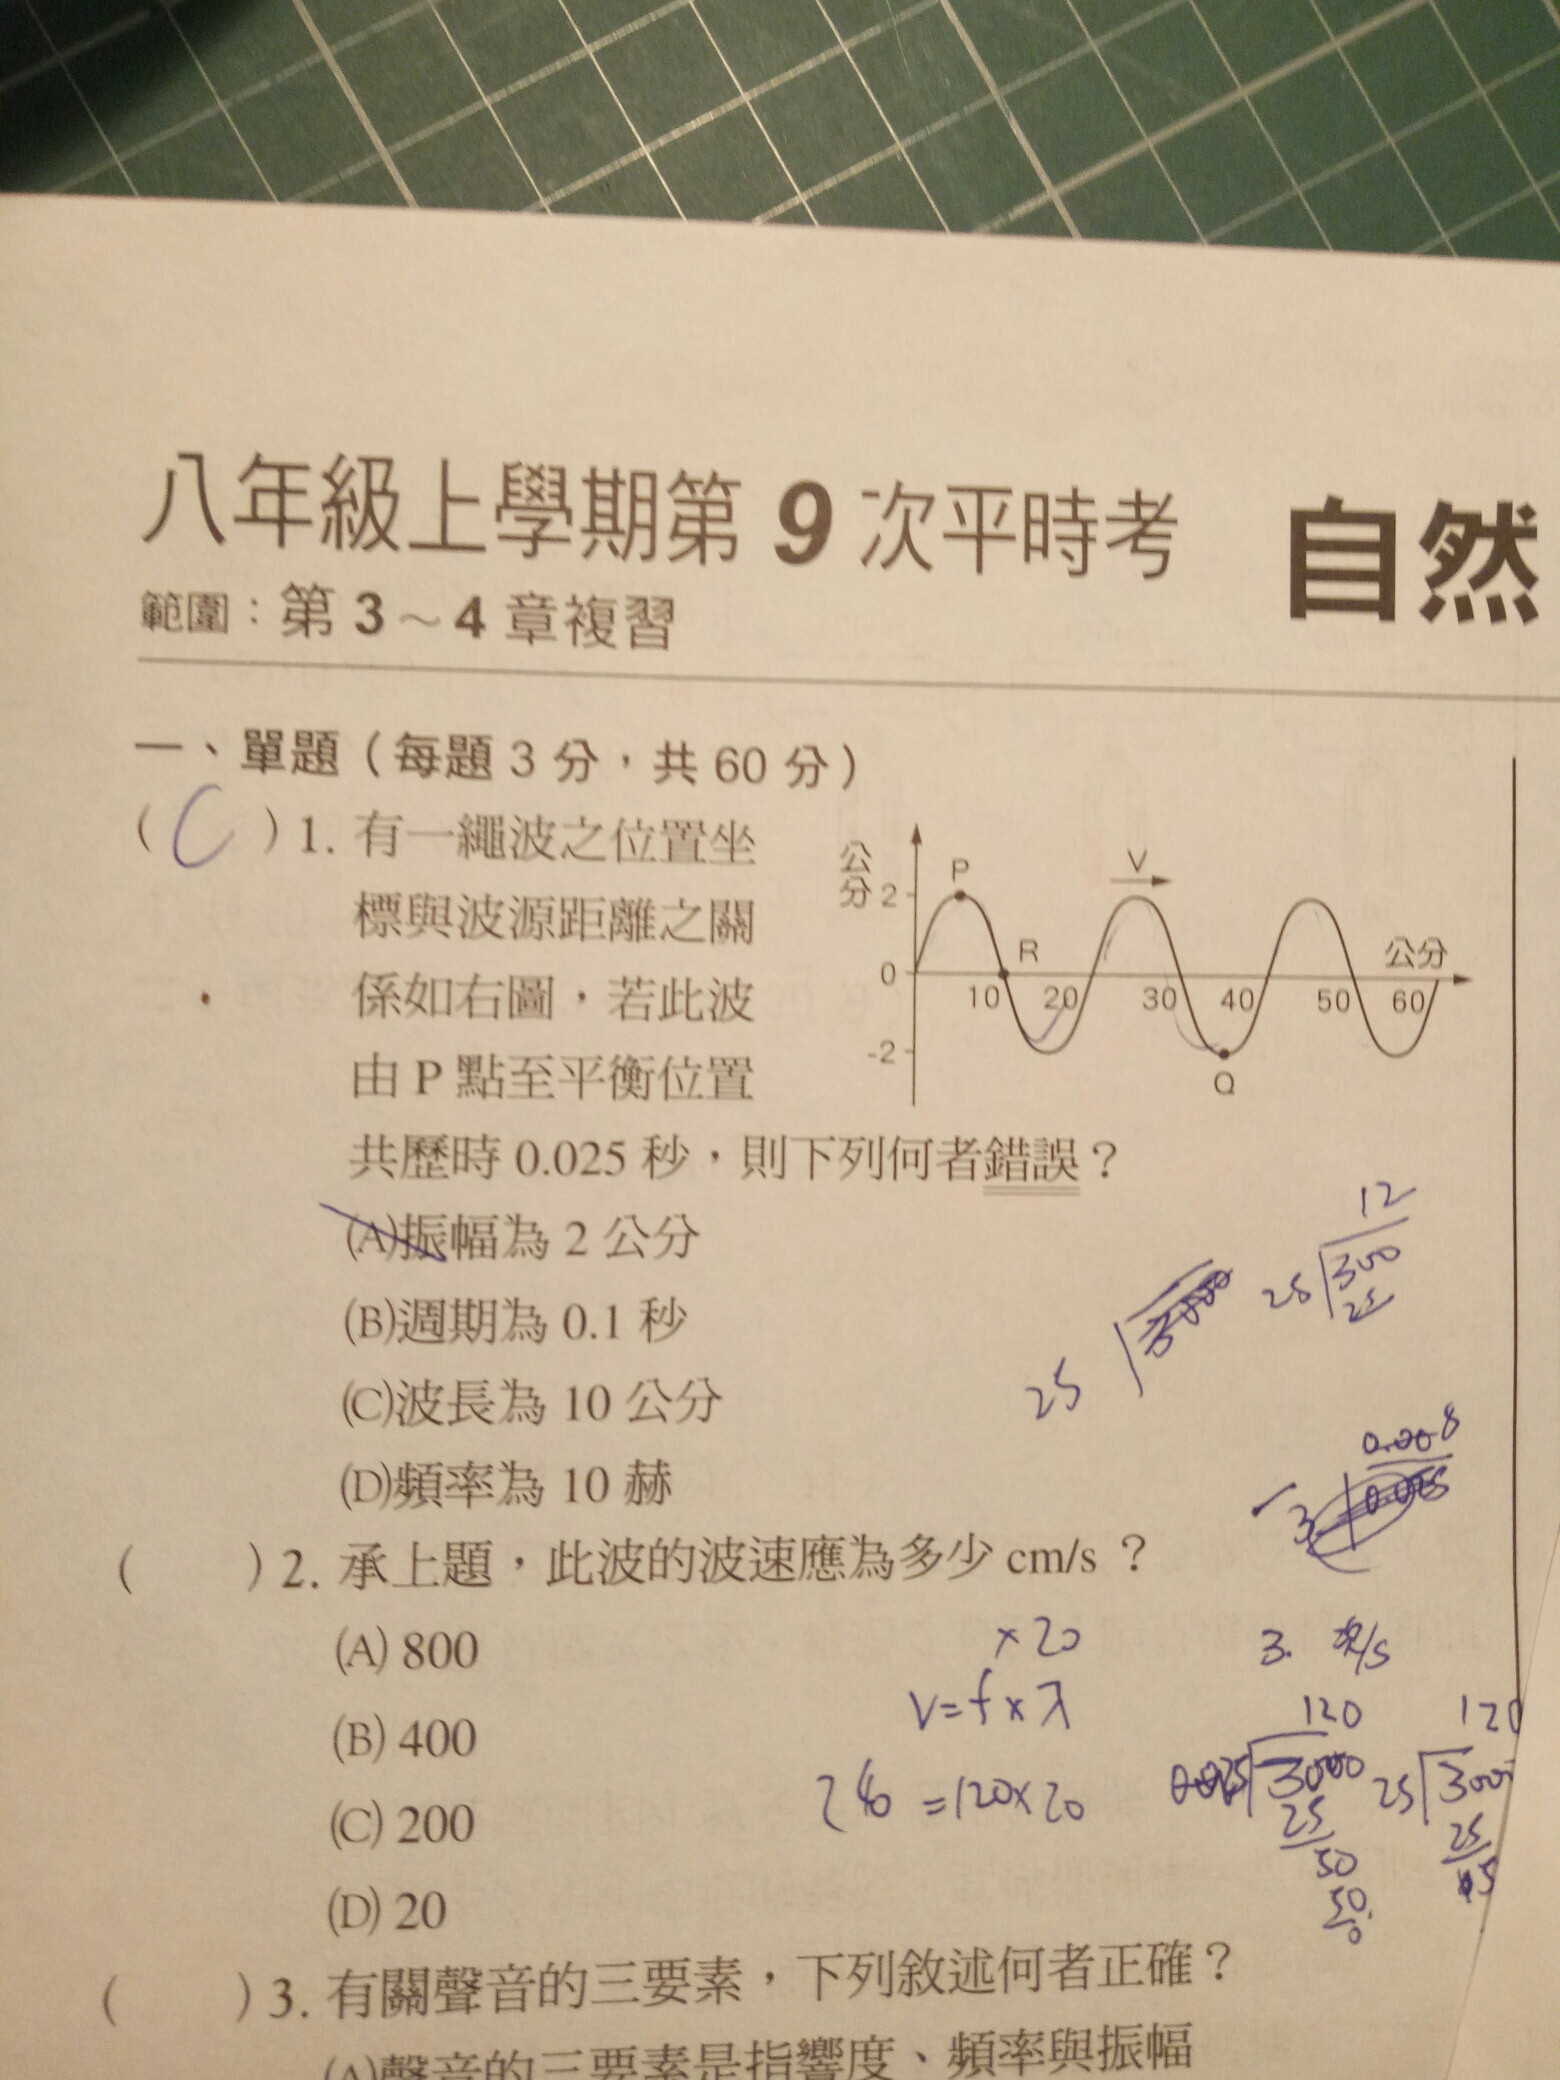 八年級上學期第 9 次平時考 自然
範圍：第 3～4 章複習
一、單題（每題 3 分，共 60 分）
( C ) 1. 有一繩波之位置坐
標與波源距離之關
係如右圖，若此波
由 P 點至平衡位置
共歷時 0.025 秒，則下列何者錯誤？
公分
2
0
-2
P
V
R
Q
公分
10 20 30 40 50 60
(A)振幅為 2 公分
(B)週期為 0.1 秒
(C)波長為 10 公分
(D)頻率為 10 赫
12
25 300
25
25
0.008
3
( ) 2. 承上題，此波的波速應為多少 cm/s ？
(A) 800
(B) 400
(C) 200
(D) 20
×20
V=f×λ
=120×20
3. 次/s
120
3000
25
50
50
0
120
25 3000
25
( ) 3. 有關聲音的三要素，下列敘述何者正確？
(A)聲音的三要素是指響度、頻率與振幅